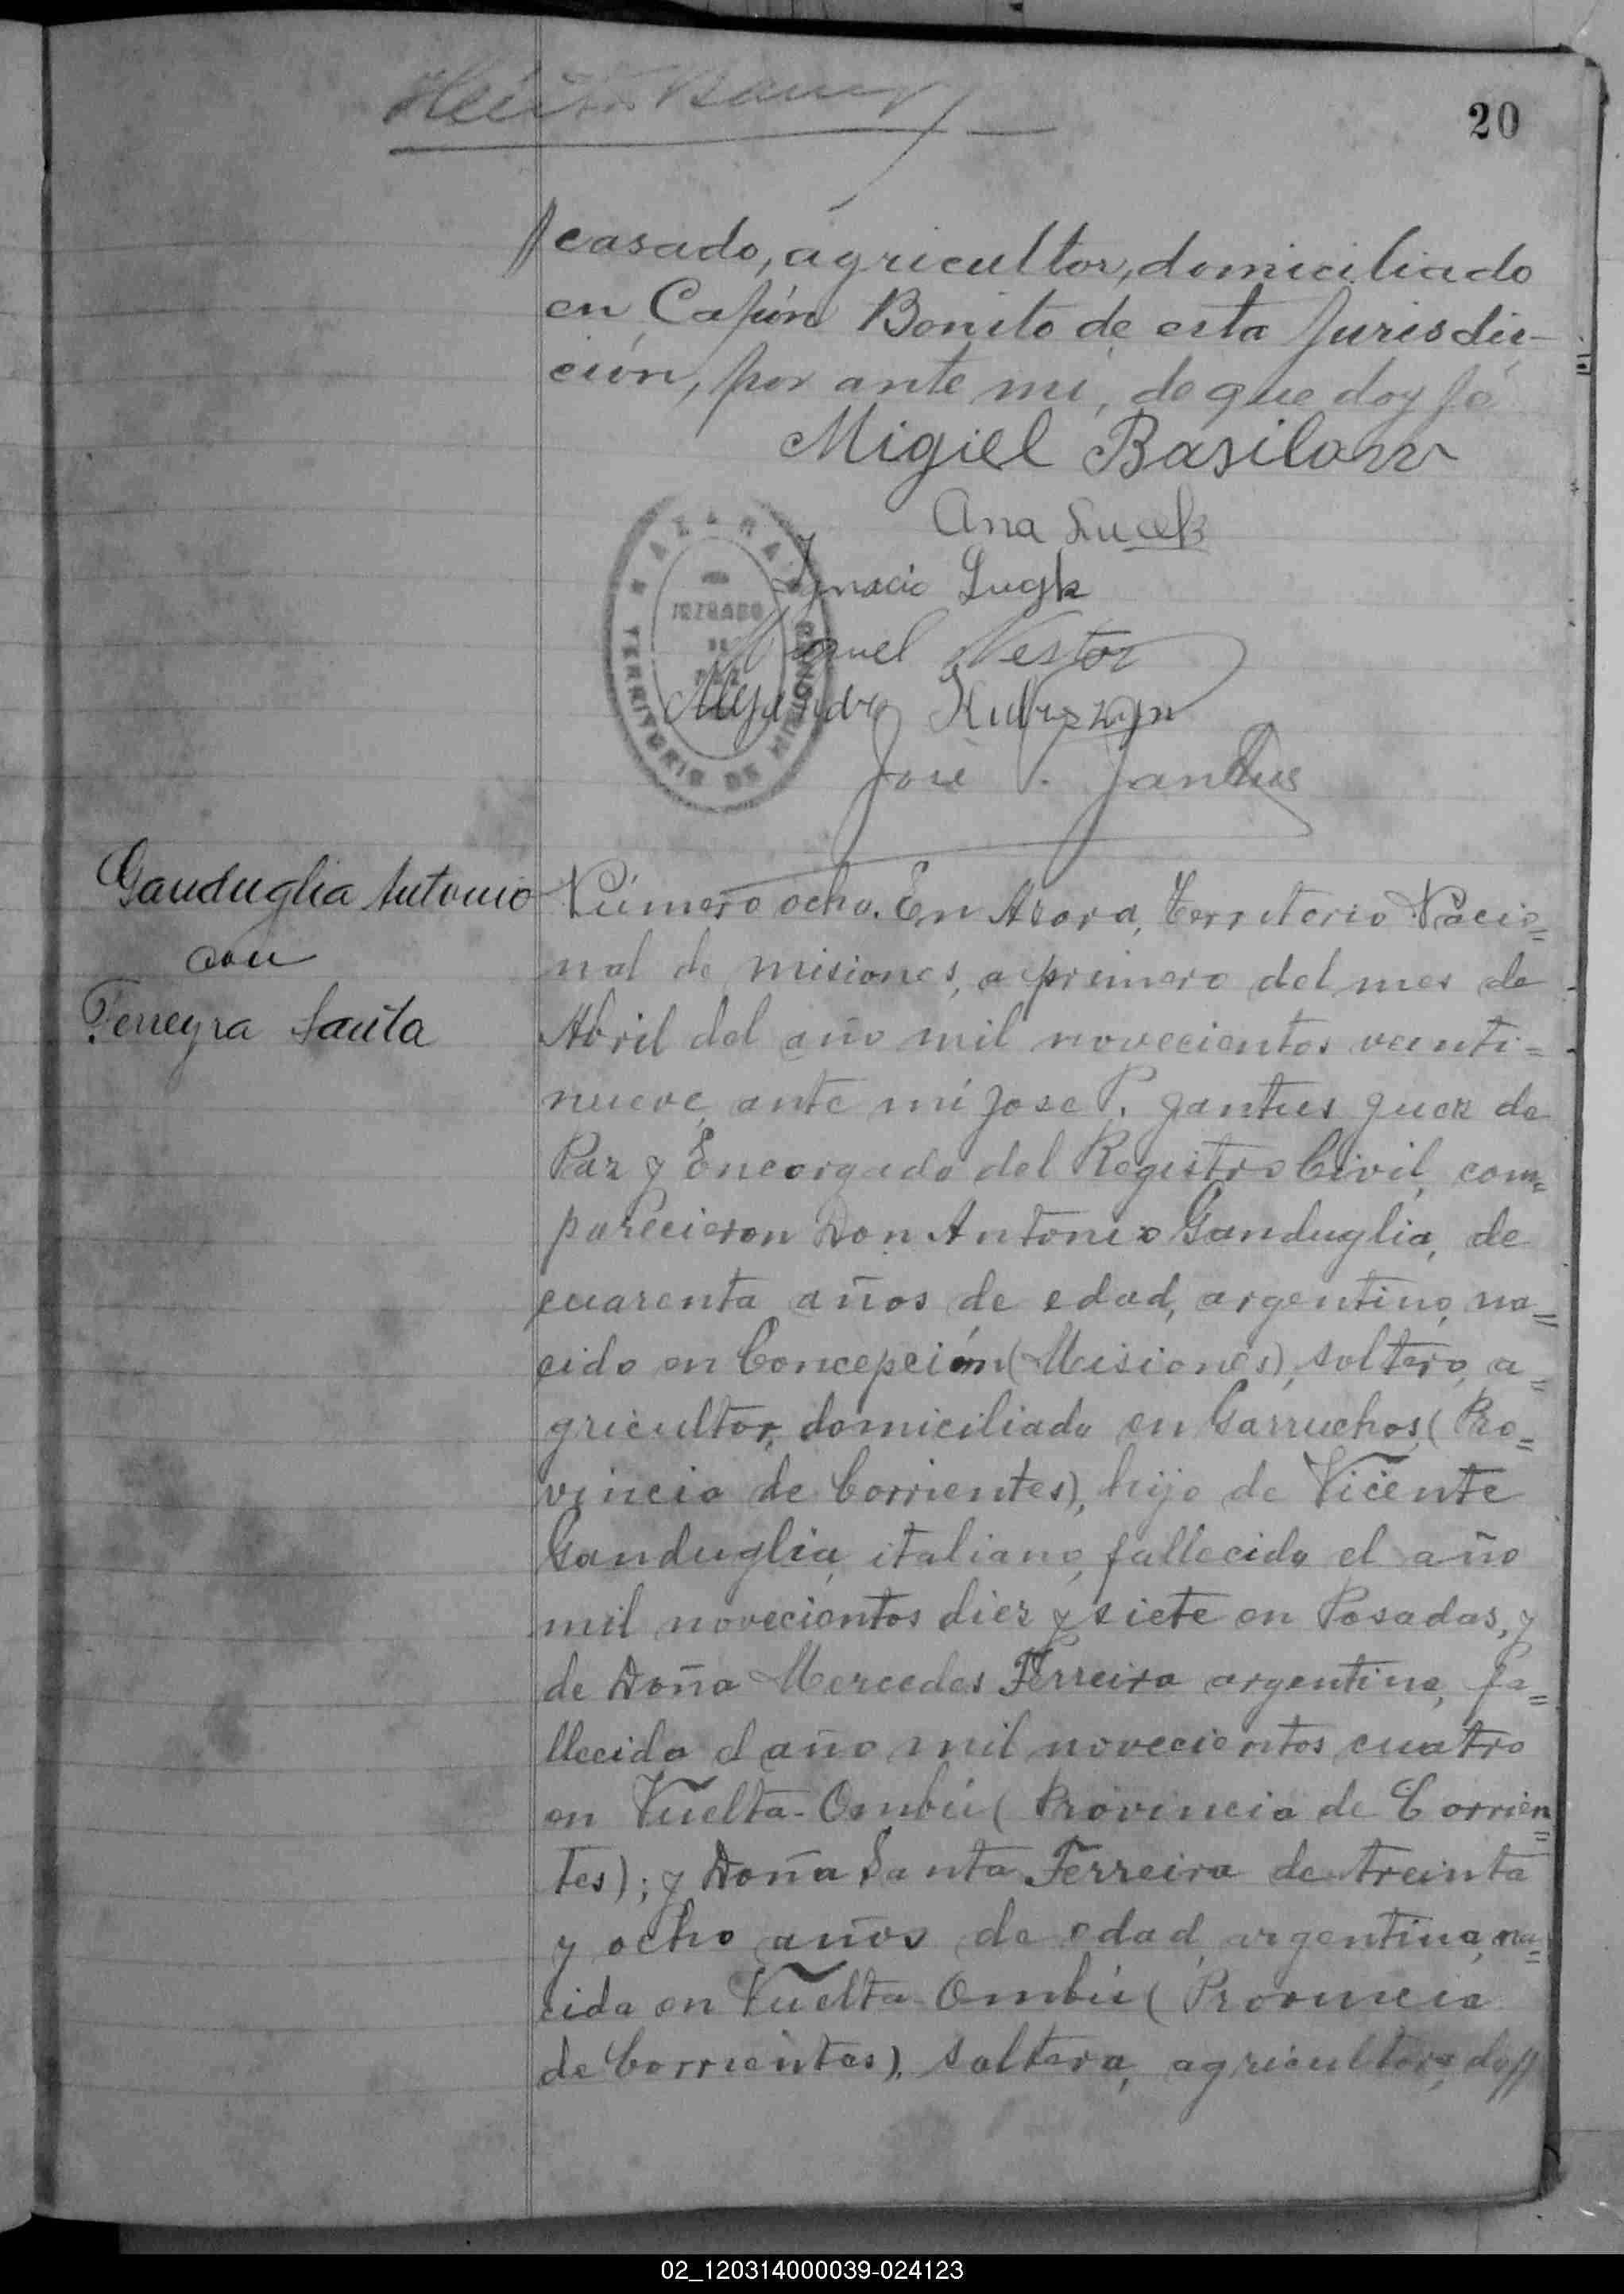 20
casado, agricultor, domiciliado
en Capón Bonito de esta Jurisdic-
ción, por ante mi, de que doy fé
Migiel Basilow
Ana
Ignacio
Manuel Nestor
Alejandro
José P. Jantus
AZARA
JUZGADO
DE
PAZ
TERRITORIO DE MISIONES
Ganduglia Antonio
con
Ferreyra Santa
Número ocho. En Azara, Territorio Nacio=
nal de misiones, a primero del mes de
Abril del año mil novecientos veinti=
nueve, ante mí Jose P. Jantus Juez de
Paz y Encargado del Registro Civil, com=
parecieron Don Antonio Ganduglia, de
cuarenta años de edad, argentino, na=
cido en Concepción (Misiones), soltero, a=
gricultor, domiciliado en Garruchos, (Pro=
vincia de Corrientes), hijo de Vicente
Ganduglia, italiano, fallecido el año
mil novecientos diez y siete en Posadas, y
de Doña Mercedes Ferreira argentina, fa=
llecida el año mil novecientos cuatro
en Vuelta-Ombú (Provincia de Corrien=
tes); y Doña Santa Ferreira de treinta
y ocho años de edad, argentina, na=
cida en Vuelta-Ombú (Provincia
de Corrientes), soltera, agricultora, do//
02_120314000039-024123